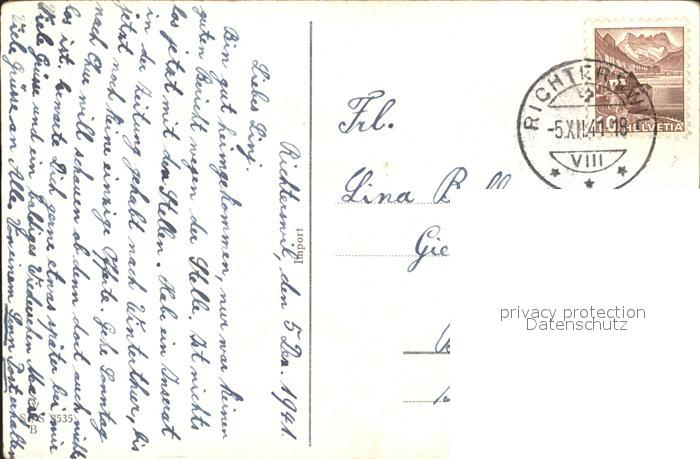 Richterswil, den 5 Dez. 1941.
Liebes Linj.
Bin gut heimgekommen, nur war keinen
guten Bericht wegen der Stelle. Ist nichts
los jetzt mit den Stellen. Habe ein Inserat
in der Zeitung gehabt nach Winterthur, bis
jetzt noch keine einzige Offerte. Gehe Sonntag
nach Chur will schauen ob denn dort auch nichts
los ist. Erwarte Dich gerne etwas später bei mir
Viele Grüsse und ein baldiges Wiedersehen Marie
Viele Grüsse an Alle. Von einem
Import
8535
B
Frl.
Lina
Gie
RICHTERSWIL
-5.XII.41-18
VIII
10
HELVETIA
privacy protection
Datenschutz